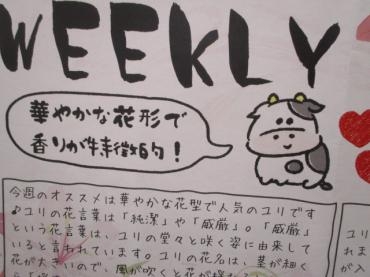 WEEKLY
華やかな花形で
香りが特徴的!
今週のオススメは華やかな花型で人気のユリです
♪ユリの花言葉は「純潔」や「威厳」。「威厳」
という花言葉は、ユリの堂々と咲く姿に由来して
いると言われています。ユリの花名は、茎が細く
花が大きいので、風が吹くと花が揺れる